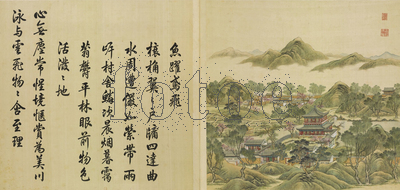 魚躍鳶飛
榱桷翼翼戶牖四達曲
水周遭儼如縈帶兩
岸村舍鱗次晨煙暮靄
蓊鬱平林眼前物色
活潑潑地
心無塵常惺境愜賞為美川
泳與雲飛物物含至理
lotee